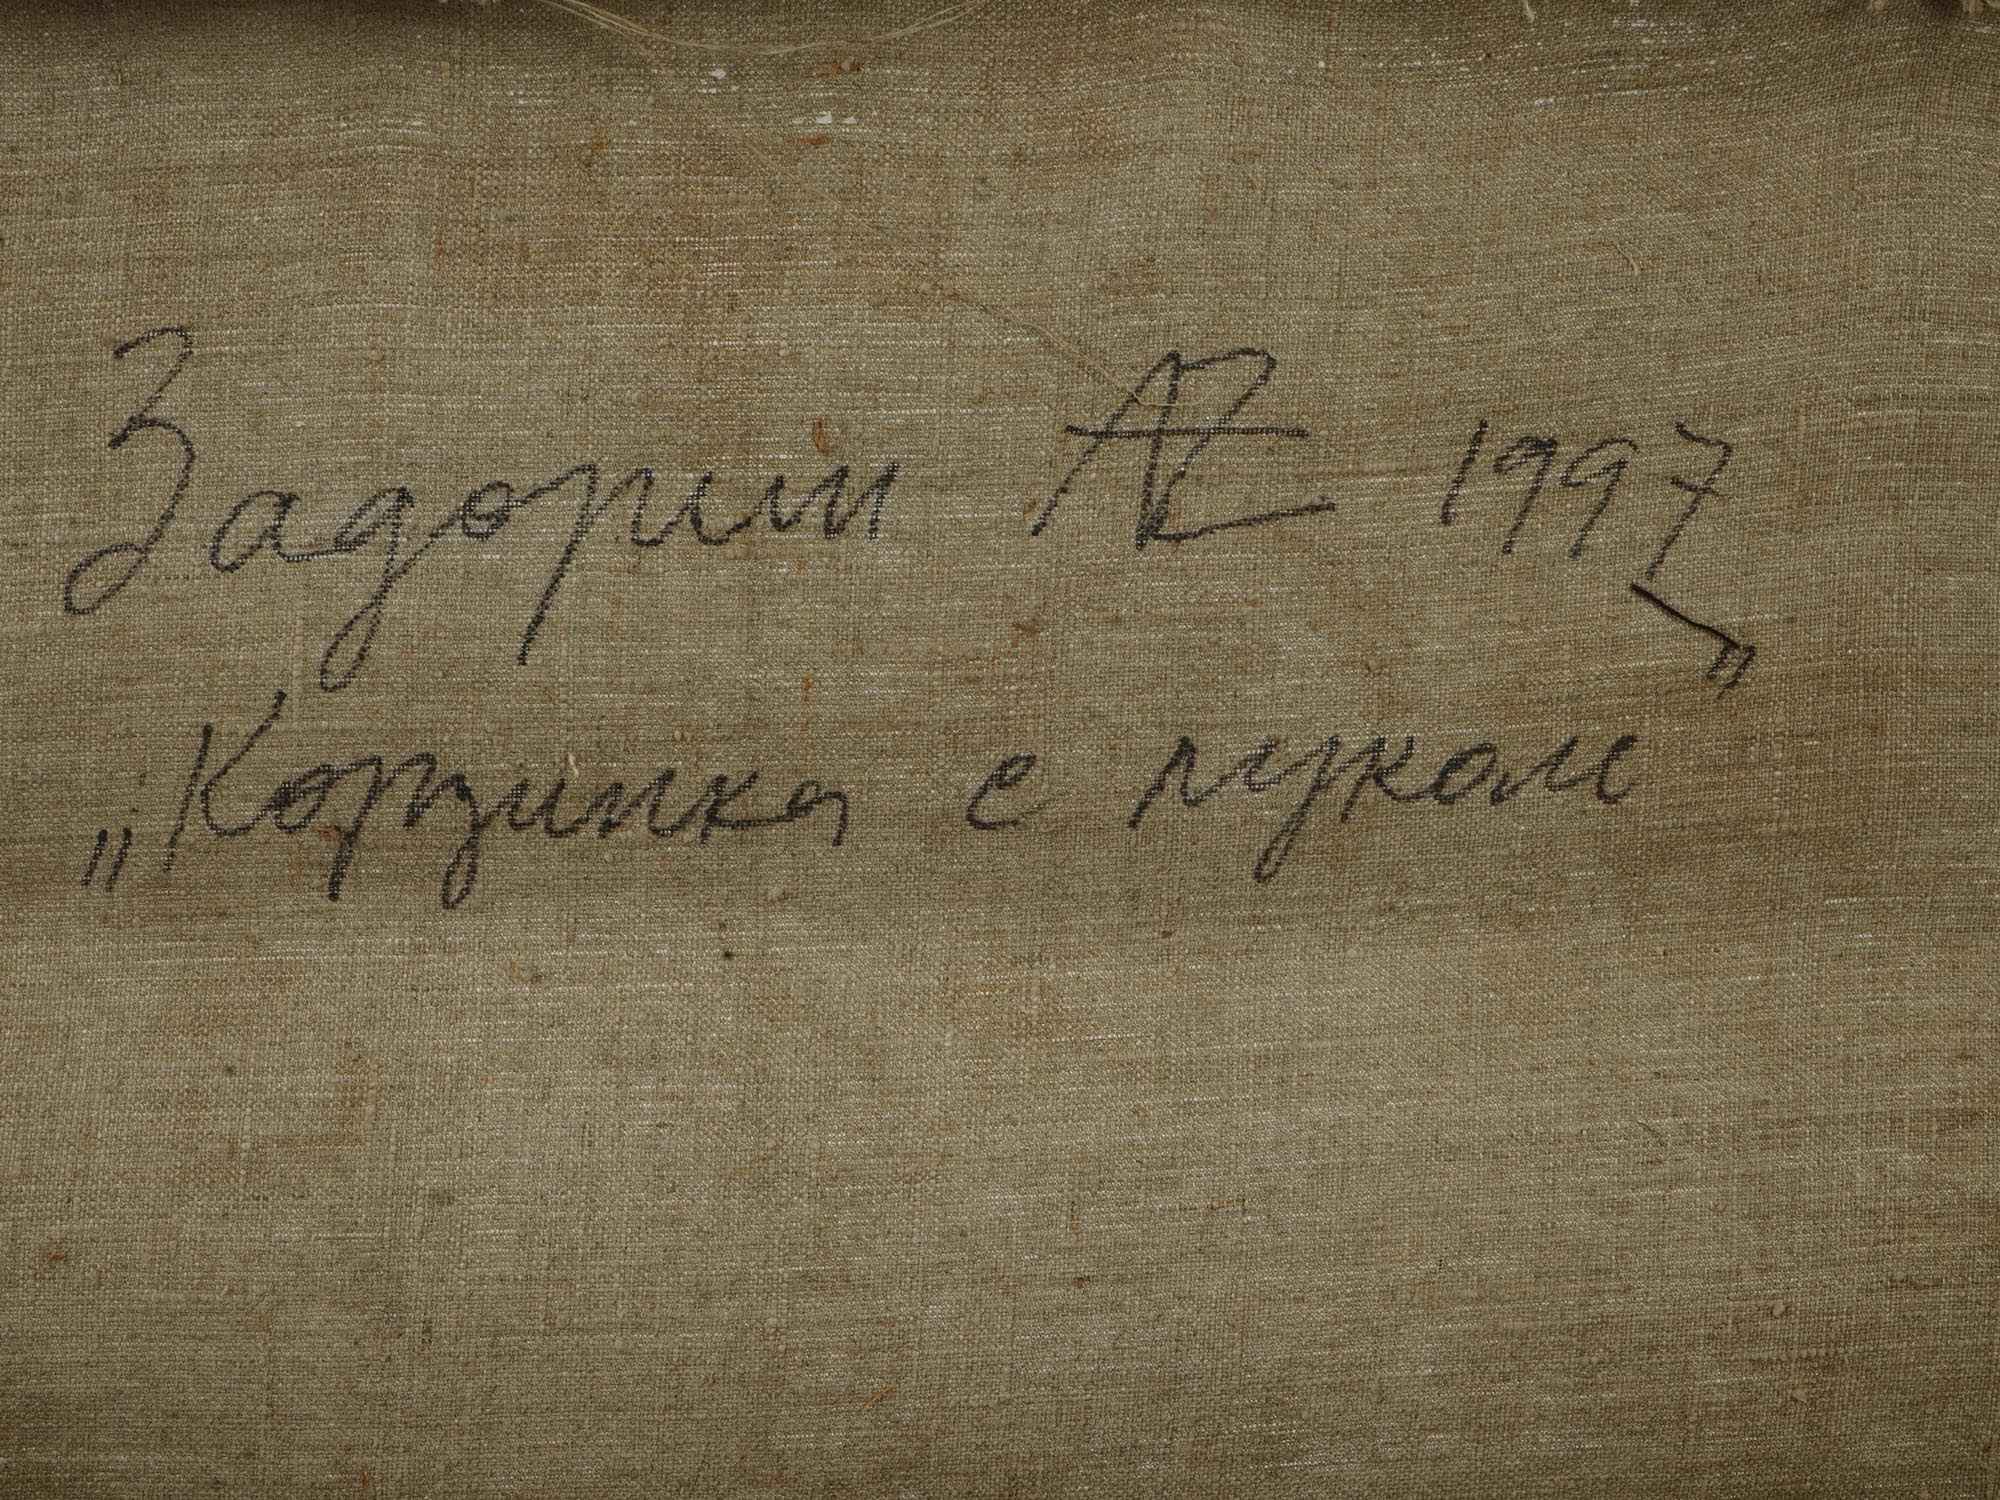 Задорин АZ 1997
„Корзинка с луком"